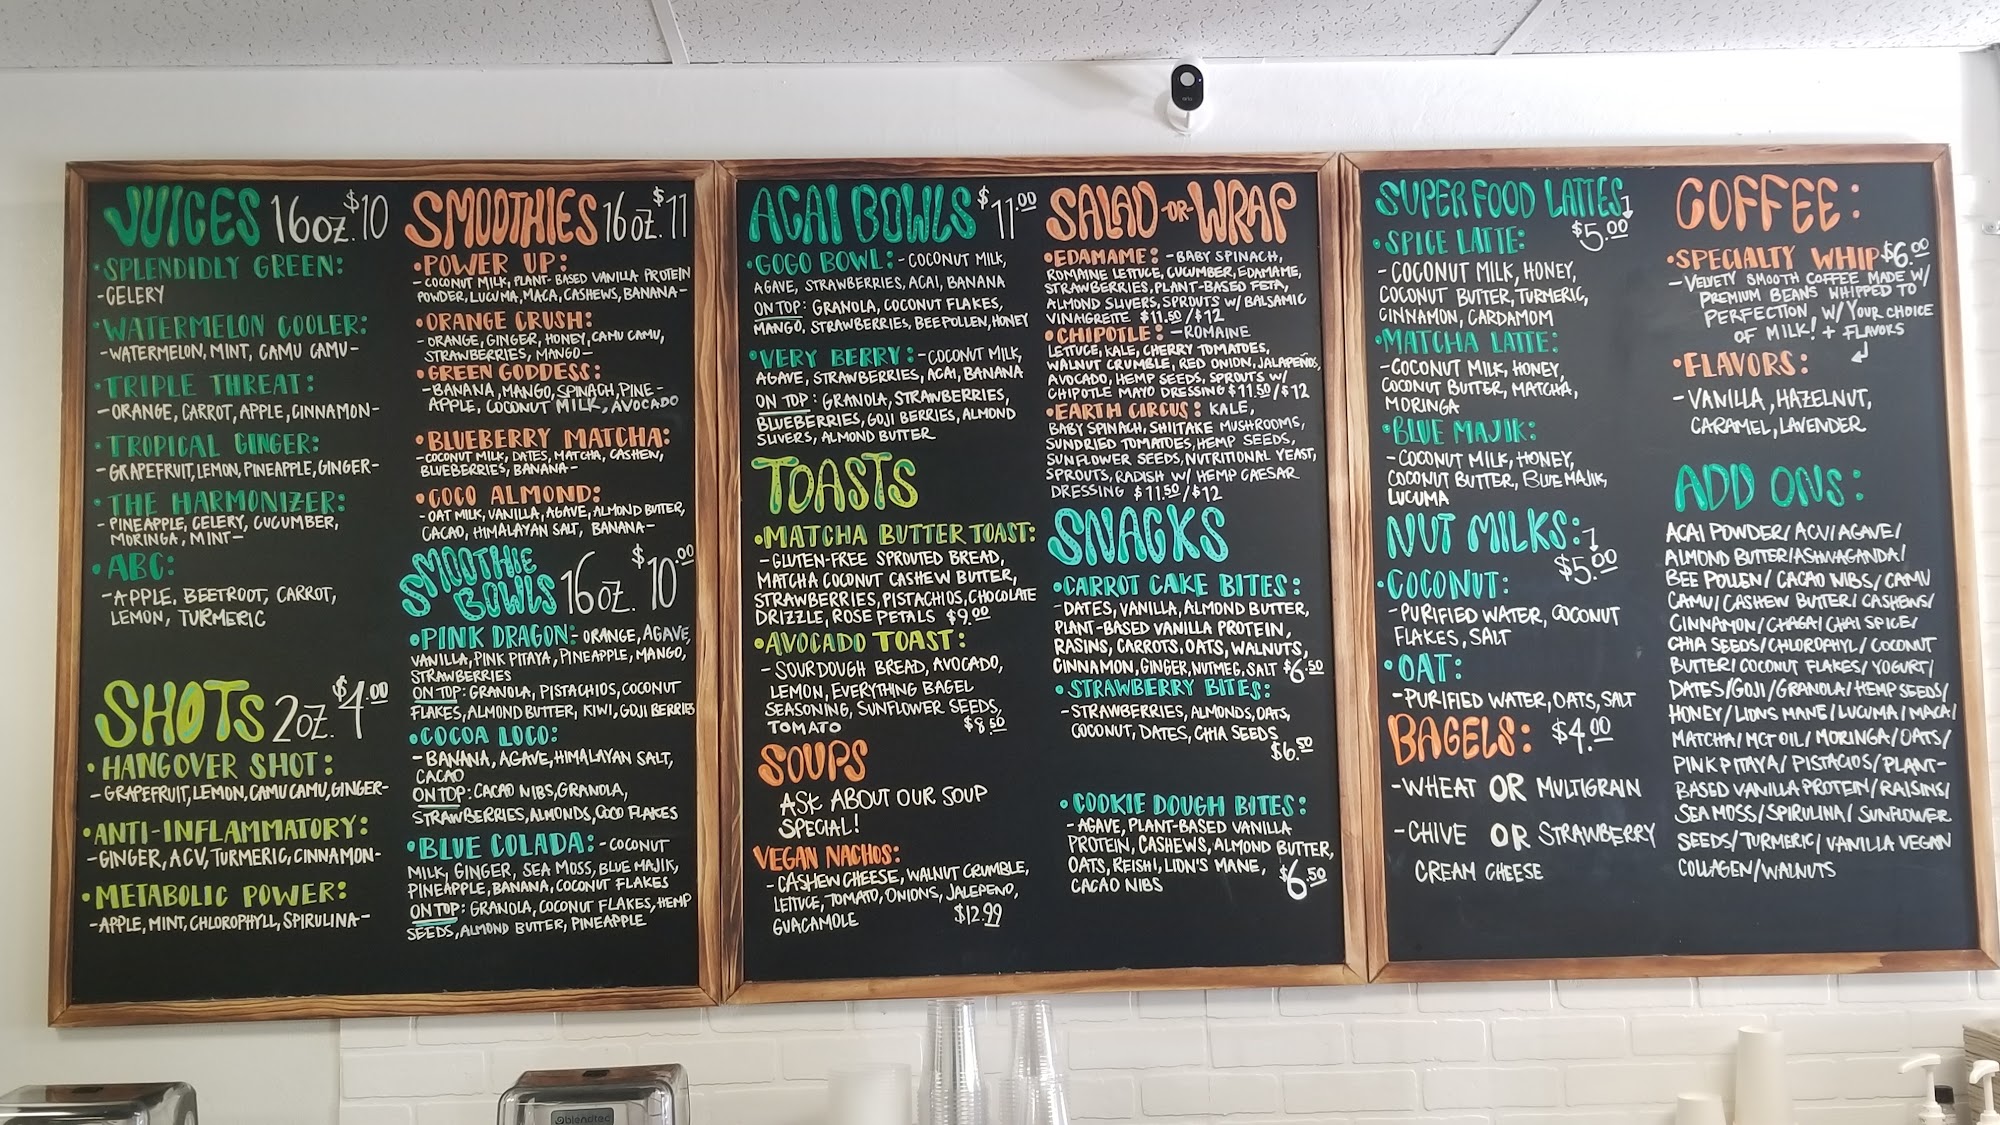 JUICES 16oz. $10
•SPLENDIDLY GREEN:
-CELERY
•WATERMELON COOLER:
-WATERMELON, MINT, CAMU CAMU-
•TRIPLE THREAT:
-ORANGE, CARROT, APPLE, CINNAMON-
•TROPICAL GINGER:
-GRAPEFRUIT, LEMON, PINEAPPLE, GINGER-
•THE HARMONIZER:
-PINEAPPLE, CELERY, CUCUMBER,
MORINGA, MINT-
•ABC:
-APPLE, BEETROOT, CARROT,
LEMON, TURMERIC
SHOTS 2oz. $4.00
•HANGOVER SHOT:
-GRAPEFRUIT, LEMON, CAMU CAMU, GINGER-
•ANTI-INFLAMMATORY:
-GINGER, ACV, TURMERIC, CINNAMON-
•METABOLIC POWER:
-APPLE, MINT, CHLOROPHYLL, SPIRULINA-
SMOOTHIES 16oz. $11
•POWER UP:
-COCONUT MILK, PLANT-BASED VANILLA PROTEIN
POWDER, LUCUMA, MACA, CASHEWS, BANANA-
•ORANGE CRUSH:
-ORANGE, GINGER, HONEY, CAMU CAMU,
STRAWBERRIES, MANGO-
•GREEN GODDESS:
-BANANA, MANGO, SPINACH, PINE-
APPLE, COCONUT MILK, AVOCADO
•BLUEBERRY MATCHA:
-COCONUT MILK, DATES, MATCHA, CASHEW,
BLUEBERRIES, BANANA-
•COCO ALMOND:
-OAT MILK, VANILLA, AGAVE, ALMOND BUTTER,
CACAO, HIMALAYAN SALT, BANANA-
SMOOTHIE
BOWLS 16oz. $10.00
•PINK DRAGON:-ORANGE, AGAVE,
VANILLA, PINK PITAYA, PINEAPPLE, MANGO,
STRAWBERRIES
ON TOP: GRANOLA, PISTACHIOS, COCONUT
FLAKES, ALMOND BUTTER, KIWI, GOJI BERRIES
•COCOA LOCO:
-BANANA, AGAVE, HIMALAYAN SALT,
CACAO
ON TOP: CACAO NIBS, GRANOLA,
STRAWBERRIES, ALMONDS, COCO FLAKES
•BLUE COLADA:-COCONUT
MILK, GINGER, SEA MOSS, BLUE MAJIK,
PINEAPPLE, BANANA, COCONUT FLAKES
ON TOP: GRANOLA, COCONUT FLAKES, HEMP
SEEDS, ALMOND BUTTER, PINEAPPLE
ACAI BOWLS $11.00
•GOGO BOWL:-COCONUT MILK,
AGAVE, STRAWBERRIES, ACAI, BANANA
ON TOP: GRANOLA, COCONUT FLAKES,
MANGO, STRAWBERRIES, BEE POLLEN, HONEY
•VERY BERRY:-COCONUT MILK,
AGAVE, STRAWBERRIES, ACAI, BANANA
ON TOP: GRANOLA, STRAWBERRIES,
BLUEBERRIES, GOJI BERRIES, ALMOND
SLIVERS, ALMOND BUTTER
TOASTS
•MATCHA BUTTER TOAST:
-GLUTEN-FREE SPROUTED BREAD,
MATCHA COCONUT CASHEW BUTTER,
STRAWBERRIES, PISTACHIOS, CHOCOLATE
DRIZZLE, ROSE PETALS $9.00
•AVOCADO TOAST:
-SOURDOUGH BREAD, AVOCADO,
LEMON, EVERYTHING BAGEL
SEASONING, SUNFLOWER SEEDS,
TOMATO $8.50
SOUPS
ASK ABOUT OUR SOUP
SPECIAL!
VEGAN NACHOS:
-CASHEW CHEESE, WALNUT CRUMBLE,
LETTUCE, TOMATO, ONIONS, JALEPENO,
GUACAMOLE $12.99
SALAD -OR- WRAP
•EDAMAME:-BABY SPINACH,
ROMAINE LETTUCE, CUCUMBER, EDAMAME,
STRAWBERRIES, PLANT-BASED FETA,
ALMOND SLIVERS, SPROUTS W/ BALSAMIC
VINAIGRETTE $11.50/$12
•CHIPOTLE:-ROMAINE
LETTUCE, KALE, CHERRY TOMATOES,
WALNUT CRUMBLE, RED ONION, JALAPEÑOS,
AVOCADO, HEMP SEEDS, SPROUTS W/
CHIPOTLE MAYO DRESSING $11.50/$12
•EARTH CIRCUS: KALE,
BABY SPINACH, SHIITAKE MUSHROOMS,
SUNDRIED TOMATOES, HEMP SEEDS,
SUNFLOWER SEEDS, NUTRITIONAL YEAST,
SPROUTS, RADISH W/ HEMP CAESAR
DRESSING $11.50/$12
SNACKS
•CARROT CAKE BITES:
-DATES, VANILLA, ALMOND BUTTER,
PLANT-BASED VANILLA PROTEIN,
RASINS, CARROTS, OATS, WALNUTS,
CINNAMON, GINGER, NUTMEG, SALT $6.50
•STRAWBERRY BITES:
-STRAWBERRIES, ALMONDS, OATS,
COCONUT, DATES, CHIA SEEDS
$6.50
•COOKIE DOUGH BITES:
-AGAVE, PLANT-BASED VANILLA
PROTEIN, CASHEWS, ALMOND BUTTER,
OATS, REISHI, LION'S MANE,
CACAO NIBS $6.50
SUPERFOOD LATTES
$5.00
•SPICE LATTE:
-COCONUT MILK, HONEY,
COCONUT BUTTER, TURMERIC,
CINNAMON, CARDAMOM
•MATCHA LATTE:
-COCONUT MILK, HONEY,
COCONUT BUTTER, MATCHA,
MORINGA
•BLUE MAJIK:
-COCONUT MILK, HONEY,
COCONUT BUTTER, BLUE MAJIK,
LUCUMA
NUT MILKS:
$5.00
•COCONUT:
-PURIFIED WATER, COCONUT
FLAKES, SALT
•OAT:
-PURIFIED WATER, OATS, SALT
BAGELS: $4.00
-WHEAT OR MULTIGRAIN
-CHIVE OR STRAWBERRY
CREAM CHEESE
COFFEE:
•SPECIALTY WHIP $6.00
-VELVETY SMOOTH COFFEE MADE W/
PREMIUM BEANS WHIPPED TO
PERFECTION, W/ YOUR CHOICE
OF MILK! + FLAVORS
•FLAVORS:
-VANILLA, HAZELNUT,
CARAMEL, LAVENDER
ADD ONS:
ACAI POWDER/ ACV/ AGAVE/
ALMOND BUTTER/ ASHWAGANDA/
BEE POLLEN/ CACAO NIBS/ CAMU
CAMU/ CASHEW BUTTER/ CASHEWS/
CINNAMON/ CHAGA/ CHAI SPICE/
CHIA SEEDS/ CHLOROPHYL/ COCONUT
BUTTER/ COCONUT FLAKES/ YOGURT/
DATES/ GOJI/ GRANOLA/ HEMP SEEDS/
HONEY/ LIONS MANE/ LUCUMA/ MACA/
MATCHA/ MCT OIL/ MORINGA/ OATS/
PINK PITAYA/ PISTACIOS/ PLANT-
BASED VANILLA PROTEIN/ RAISINS/
SEA MOSS/ SPIRULINA/ SUNFLOWER
SEEDS/ TURMERIC/ VANILLA VEGAN
COLLAGEN/ WALNUTS
blendtec